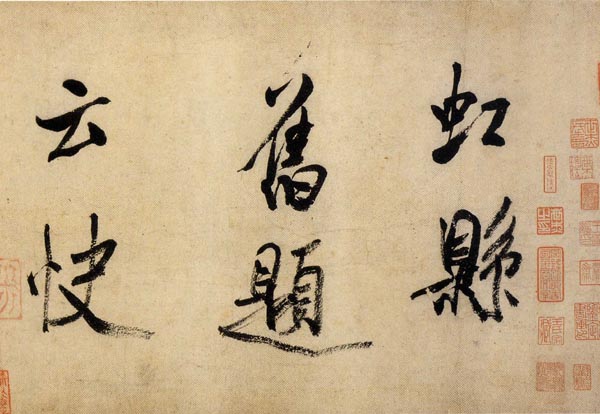 虹縣
舊題
云快